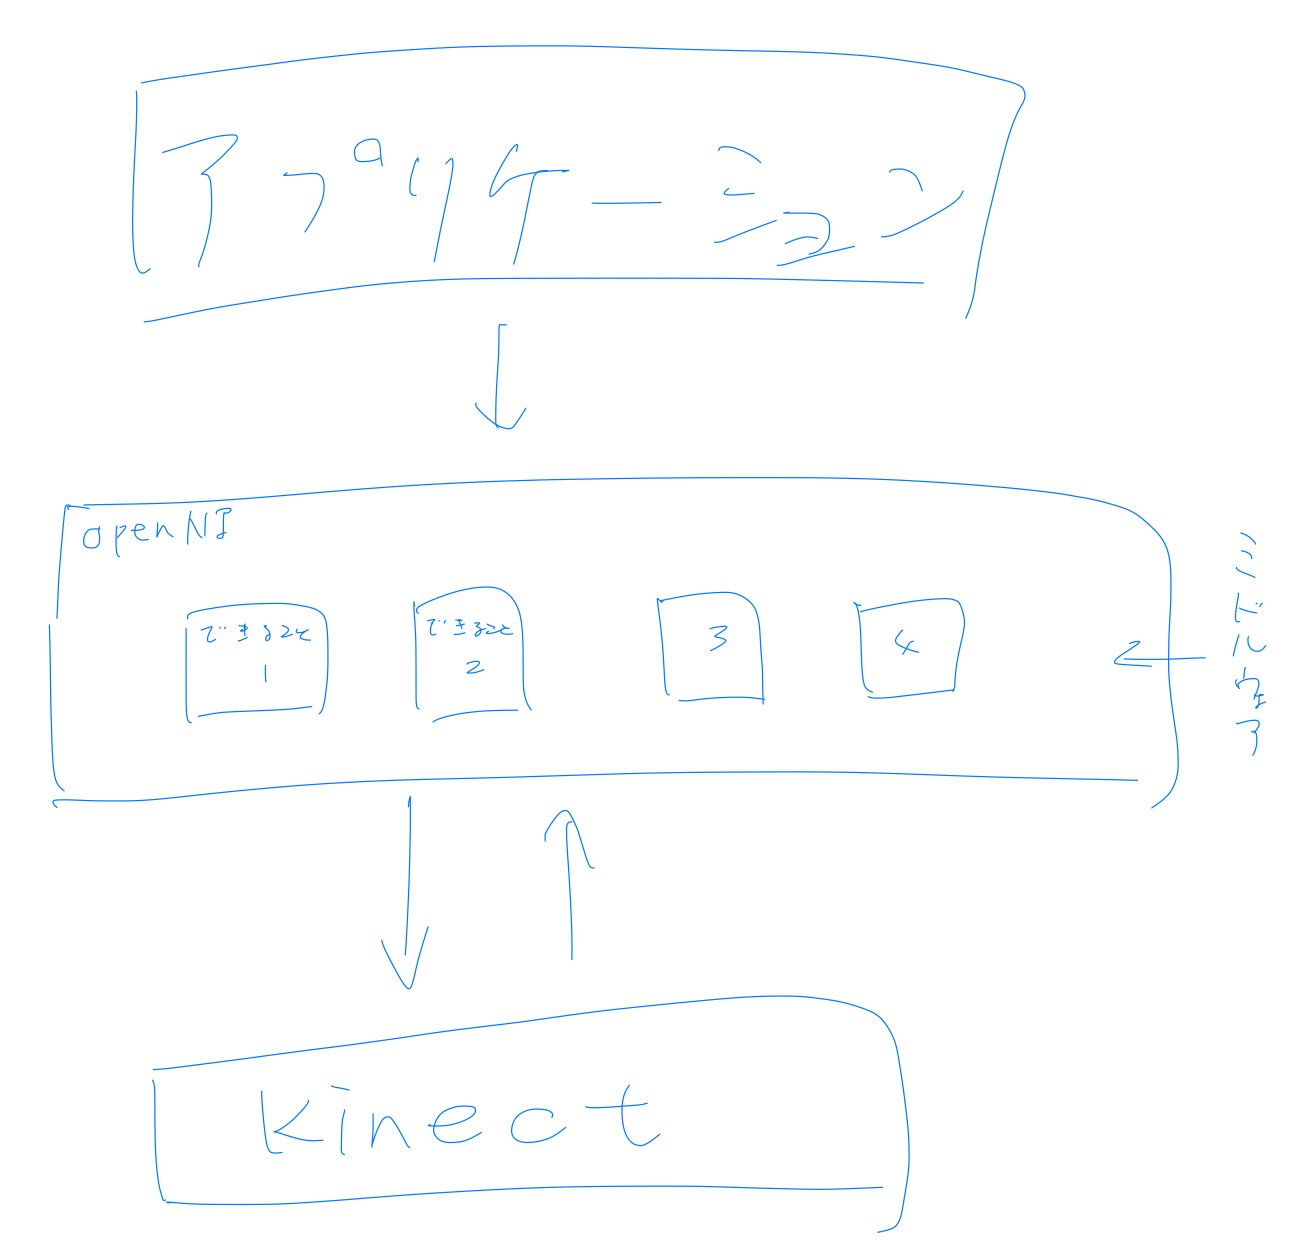 アプリケーション
openNI
できること
1
できること
2
3
4
ミドルウェア
Kinect